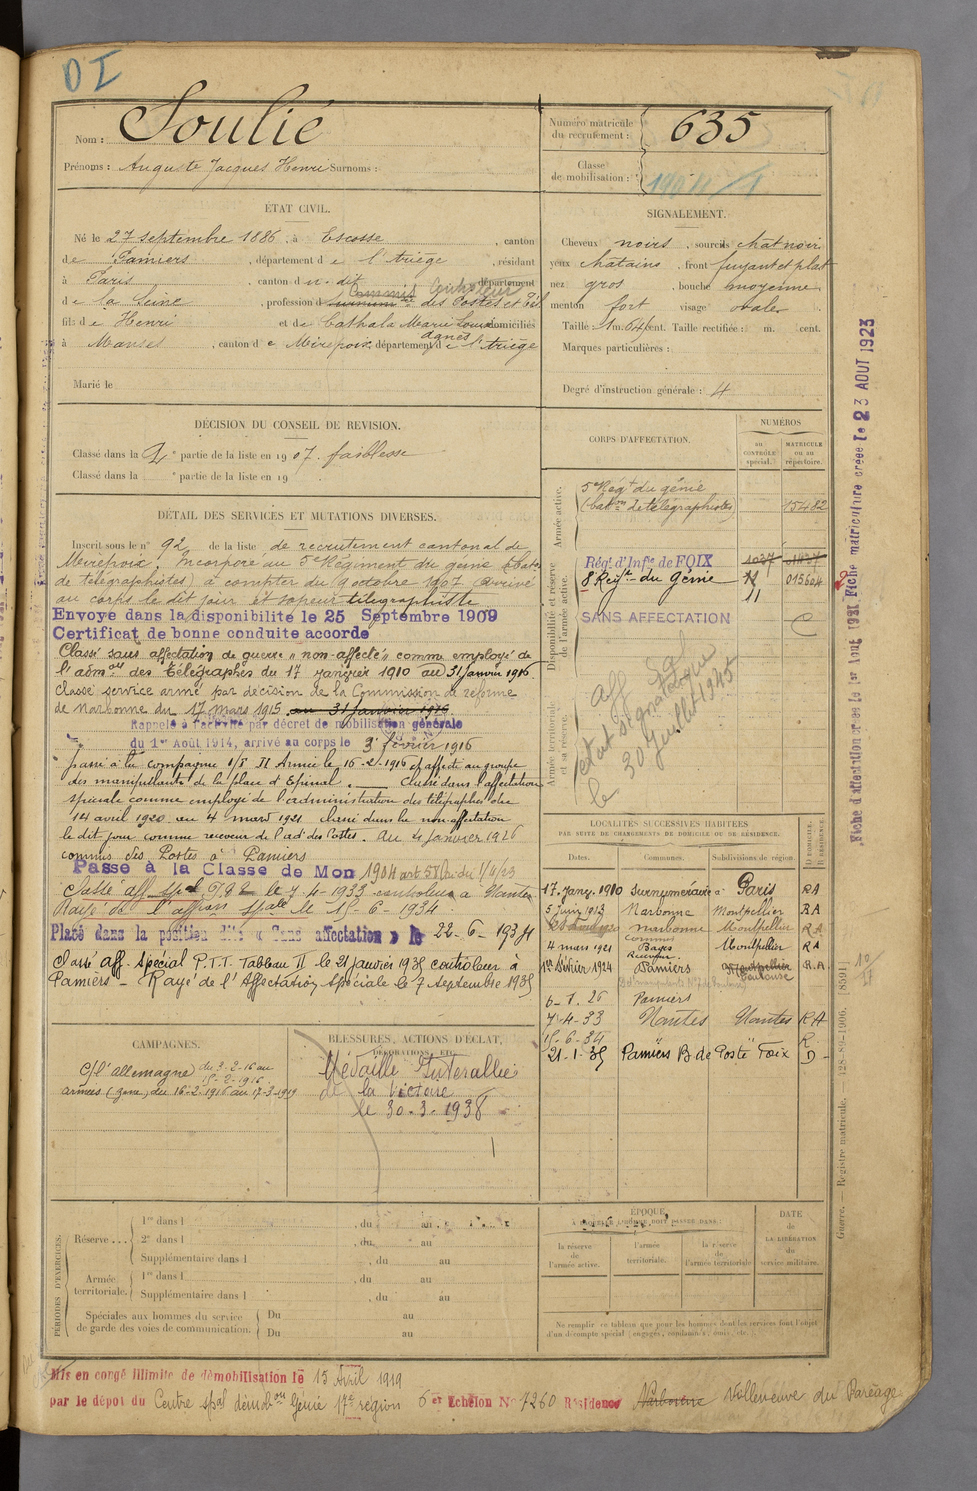 DI
Nom : Soulié
Prénoms : Auguste Jacques Henri Surnoms :
Numéro matricule
du recrutement : 635
Classe
de mobilisation : 1904/1
ÉTAT CIVIL.
Né le 27 septembre 1886, à Escosse, canton
de Pamiers, département de l'Ariège, résidant
à Paris, canton d u dit, département
Commis Contrôleur
de la Seine, profession d des Postes et Tél
fils de Henri et de Cathala Marie Louise domiciliés
Agnès
à Manses, canton de Mirepoix, département de l'Ariège
Marié le
SIGNALEMENT.
Cheveux noirs, sourcils chat noir
yeux chatains, front fuyant et plat
nez gros, bouche moyenne
menton fort visage ovale
Taille : 1 m. 64 cent. Taille rectifiée : m. cent.
Marques particulières :
Degré d'instruction générale : 4
DÉCISION DU CONSEIL DE REVISION.
Classé dans la 2e partie de la liste en 1907. faiblesse
Classé dans la e partie de la liste en 19
DÉTAIL DES SERVICES ET MUTATIONS DIVERSES.
Inscrit sous le n° 92 de la liste de recrutement cantonal de
Mirepoix. Incorporé au 5e Régiment du génie (Baton
de télégraphistes) à compter du 9 octobre 1907. Arrivé
au corps le dit jour et sapeur télégraphiste
Envoyé dans la disponibilité le 25 Septembre 1909
Certificat de bonne conduite accordé
Classé sans affectation de guerre "non-affecté" comme employé de
l'admon des Télégraphes du 17 janvier 1910 au 31 janvier 1916.
Classé service armé par décision de la Commission de réforme
de Narbonne du 17 mars 1915. au 31 janvier 1916
Rappelé à l'activité par décret de mobilisation générale
du 1er Août 1914, arrivé au corps le 3 février 1916
Passé à la compagnie 1/8 II Armée le 16-2-1916 et affecté au groupe
des manipulants de la place d'Epinal. Classé dans l'affectation
spéciale comme employé de l'administration des télégraphes du
14 avril 1920 au 4 mars 1921 classé dans la non-affectation
le dit jour comme receveur de l'ad. des Postes. Au 21 janvier 1926
commis des Postes à Pamiers
Passé à la Classe de Mon 1904 art 58 loi du 1/4/23
Classé aff. spal le 7-4-1933 contrôleur à Nantes
Rayé de l'affon spale le 15-6-1934
Placé dans la position dite « Sans affectation » le 22-6-1934
Classé aff. spécial P.T.T. Tableau II le 21 janvier 1935 contrôleur à
Pamiers - Rayé de l'Affectation Spéciale le 7 septembre 1935
CORPS D'AFFECTATION.
NUMÉROS
au
CONTRÔLE
spécial.
MATRICULE
ou au
répertoire.
Armée active.
5e Régt du génie
(baton de télégraphistes) 15482
Disponibilité et réserve
de l'armée active.
Régt d'Infie de FOIX 1037 1437
8 Reg't du Génie 11 015604
11
SANS AFFECTATION C
Armée territoriale
et sa réserve.
Aff Sal
état signalétique
le 30 Juillet 1945
LOCALITÉS SUCCESSIVES HABITÉES
PAR SUITE DE CHANGEMENTS DE DOMICILE OU DE RÉSIDENCE.
Dates. Communes. Subdivisions de région. D. DOMICILE. R. RÉSIDENCE.
17 janv. 1910 Surnuméraire à Paris RA
5 juin 1913 Narbonne Montpellier RA
Narbonne Montpellier RA
4 mars 1921 Bages Montpellier RA
Receveur
1er février 1924 Pamiers Montpellier R.A
Toulouse
6-1. 26 Pamiers
7-4-33 Nantes Nantes RA
15-6-34 R
21-1-35 Pamiers B de Poste Foix D
CAMPAGNES.
C/ l'Allemagne du 3-2-16 au
15-2-1916
armées (zone) du 16-2-1916 au 17-3-1919
BLESSURES, ACTIONS D'ÉCLAT,
DÉCORATIONS, ETC.
Médaille Interalliée
de la Victoire
le 30-3-1938
PÉRIODES D'EXERCICES.
Réserve . . .
1re dans l , du au
2e dans l , du au
Supplémentaire dans l , du au
Armée
territoriale.
1re dans l , du au
Supplémentaire dans l , du au
Spéciales aux hommes du service
de garde des voies de communication.
Du au
Du au
ÉPOQUE
À LAQUELLE L'HOMME DOIT PASSER DANS :
la réserve
de
l'armée active.
l'armée
territoriale.
la réserve
de
l'armée territoriale
DATE
de
LA LIBÉRATION
du
service militaire.
Ne remplir ce tableau que pour les hommes dont les services font l'objet
d'un décompte spécial (engagés, condamnés, omis, etc.).
Mis en congé illimité de démobilisation le 15 Avril 1919
par le dépôt du Centre spal démobon Génie 17e région 6er Echelon N° 7260 Résidence Narbonne Villeneuve du Paréage
Fiche d'affectation créée le 1er Août 1921 Fiche matriculaire créée le 23 AOUT 1923
Guerre. — Registre matricule. 128-82-1906. [8591]